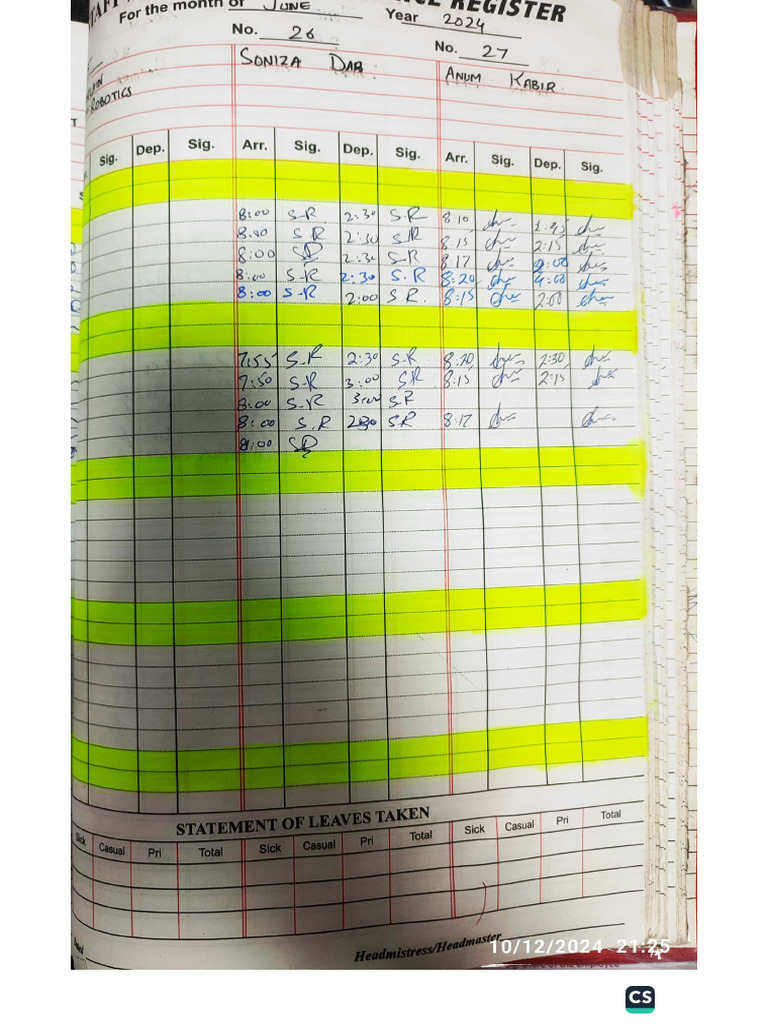 For the month of JUNE Year 2024 REGISTER
No. 26 No. 27
SONIZA DAR ANUM KABIR
ROBOTICS
Sig. Dep. Sig. Arr. Sig. Dep. Sig. Arr. Sig. Dep. Sig.
8:00 S-R 2:30 S-R 8:10 1:45
8:00 S R 2:30 S-R 8:15 2:15
8:00 SR 2:30 S-R 8:17 2:00
8:00 S-R 2:30 S.R 8:20 4:00
8:00 S-R 2:00 S.R. 8:15 2:00
7:55 S-R 2:30 S-R 8:30 2:30
7:50 S-R 3:00 S.R 8:15 2:15
8:00 S-R 3:00 S-R
8:00 S.R 2:30 SR 8:17
8:00 SR
STATEMENT OF LEAVES TAKEN
Sick Casual Pri Total Sick Casual Pri Total Sick Casual Pri Total
Headmistress/Headmaster
10/12/2024 21:25
CS